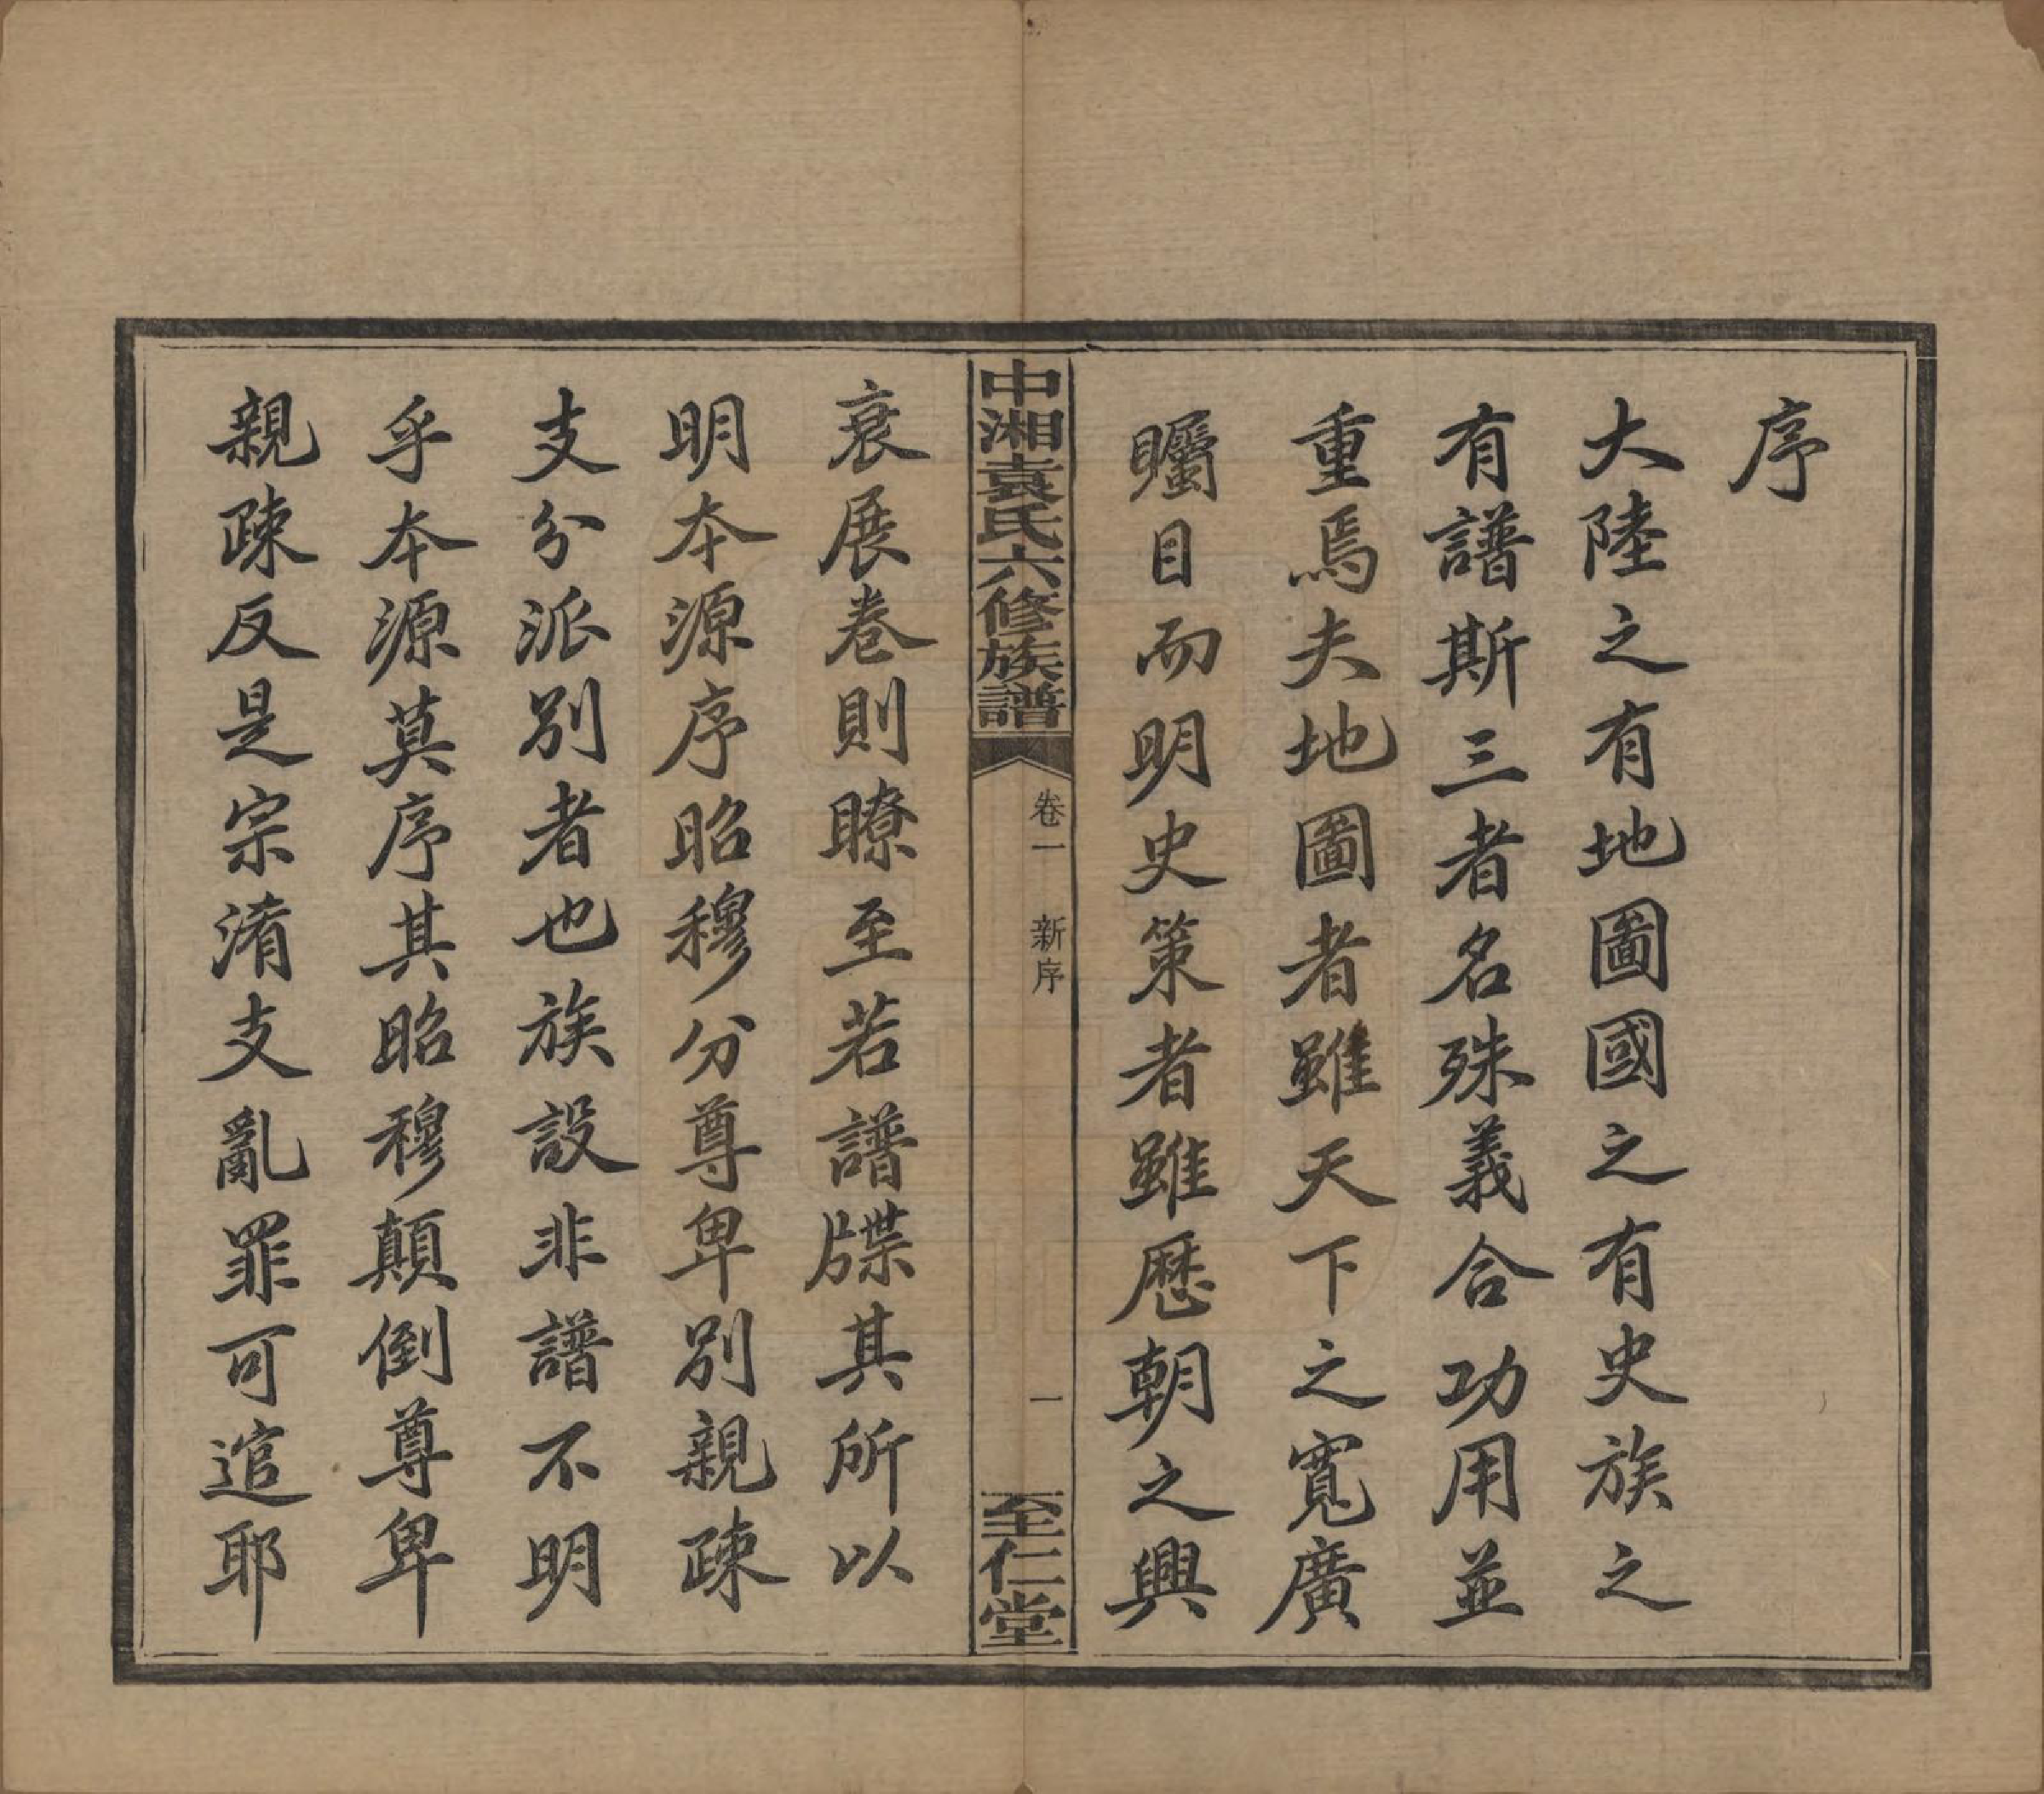 序
大陸之有地圖國之有史族之
有譜斯三者名殊義合功用並
重焉夫地圖者雖天下之寬廣
矚目而明史策者雖歷朝之興
中湘袁氏六修族譜
卷一 新序
一
至仁堂
衰展卷則瞭至若譜牒其所以
明本源序昭穆分尊卑別親疎
支分派別者也族設非譜不明
乎本源莫序其昭穆顛倒尊卑
親疎反是宗淆支亂罪可逭耶